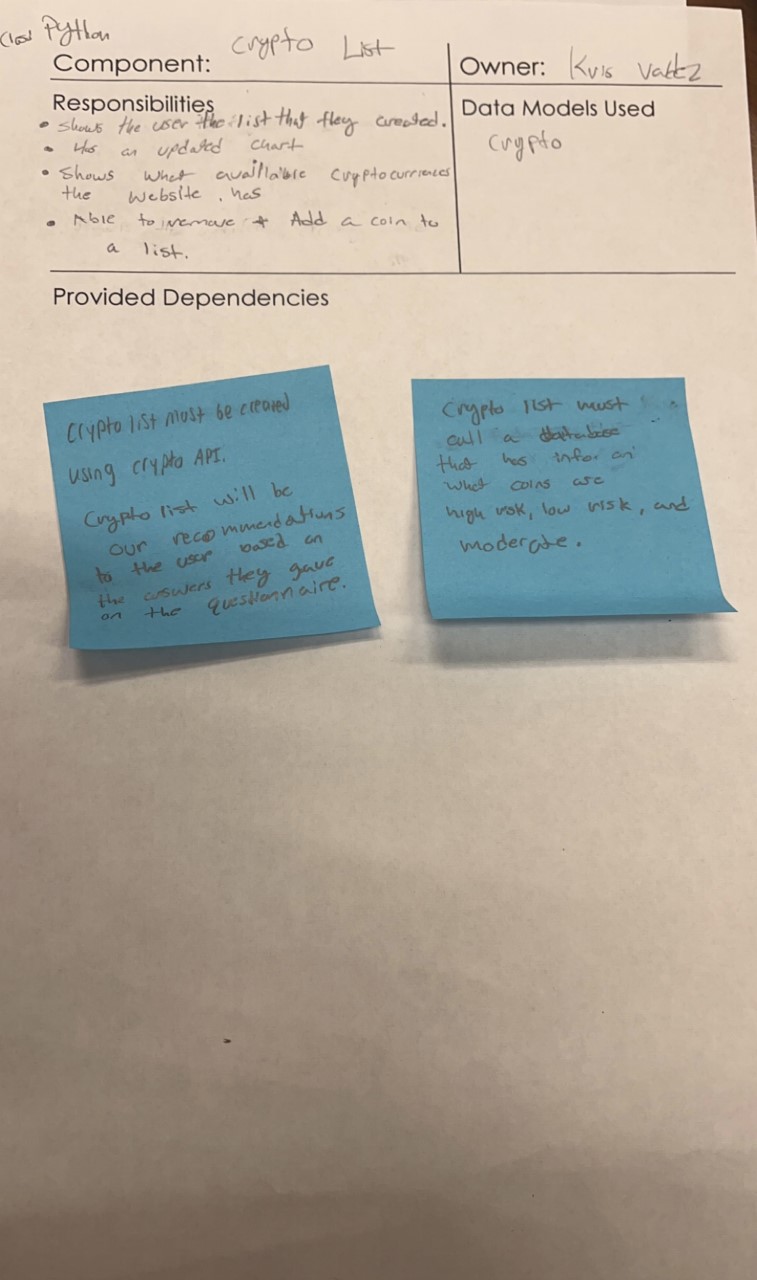 Python
Component: Crypto List
Owner:
Responsibilities
• Shows the user the list that they created.
• Has an updated chart
• Shows what availlable cryptocurriences
the website has
• Able to remove + Add a coin to
a list.
Data Models Used
Crypto
Provided Dependencies
Crypto list must be created
using crypto API.
Crypto list will be
our recommendations
to the user based on
the answers they gave
on the questionnaire.
Crypto list must
call a database
that has info on
what coins are
high risk, low risk, and
moderate.